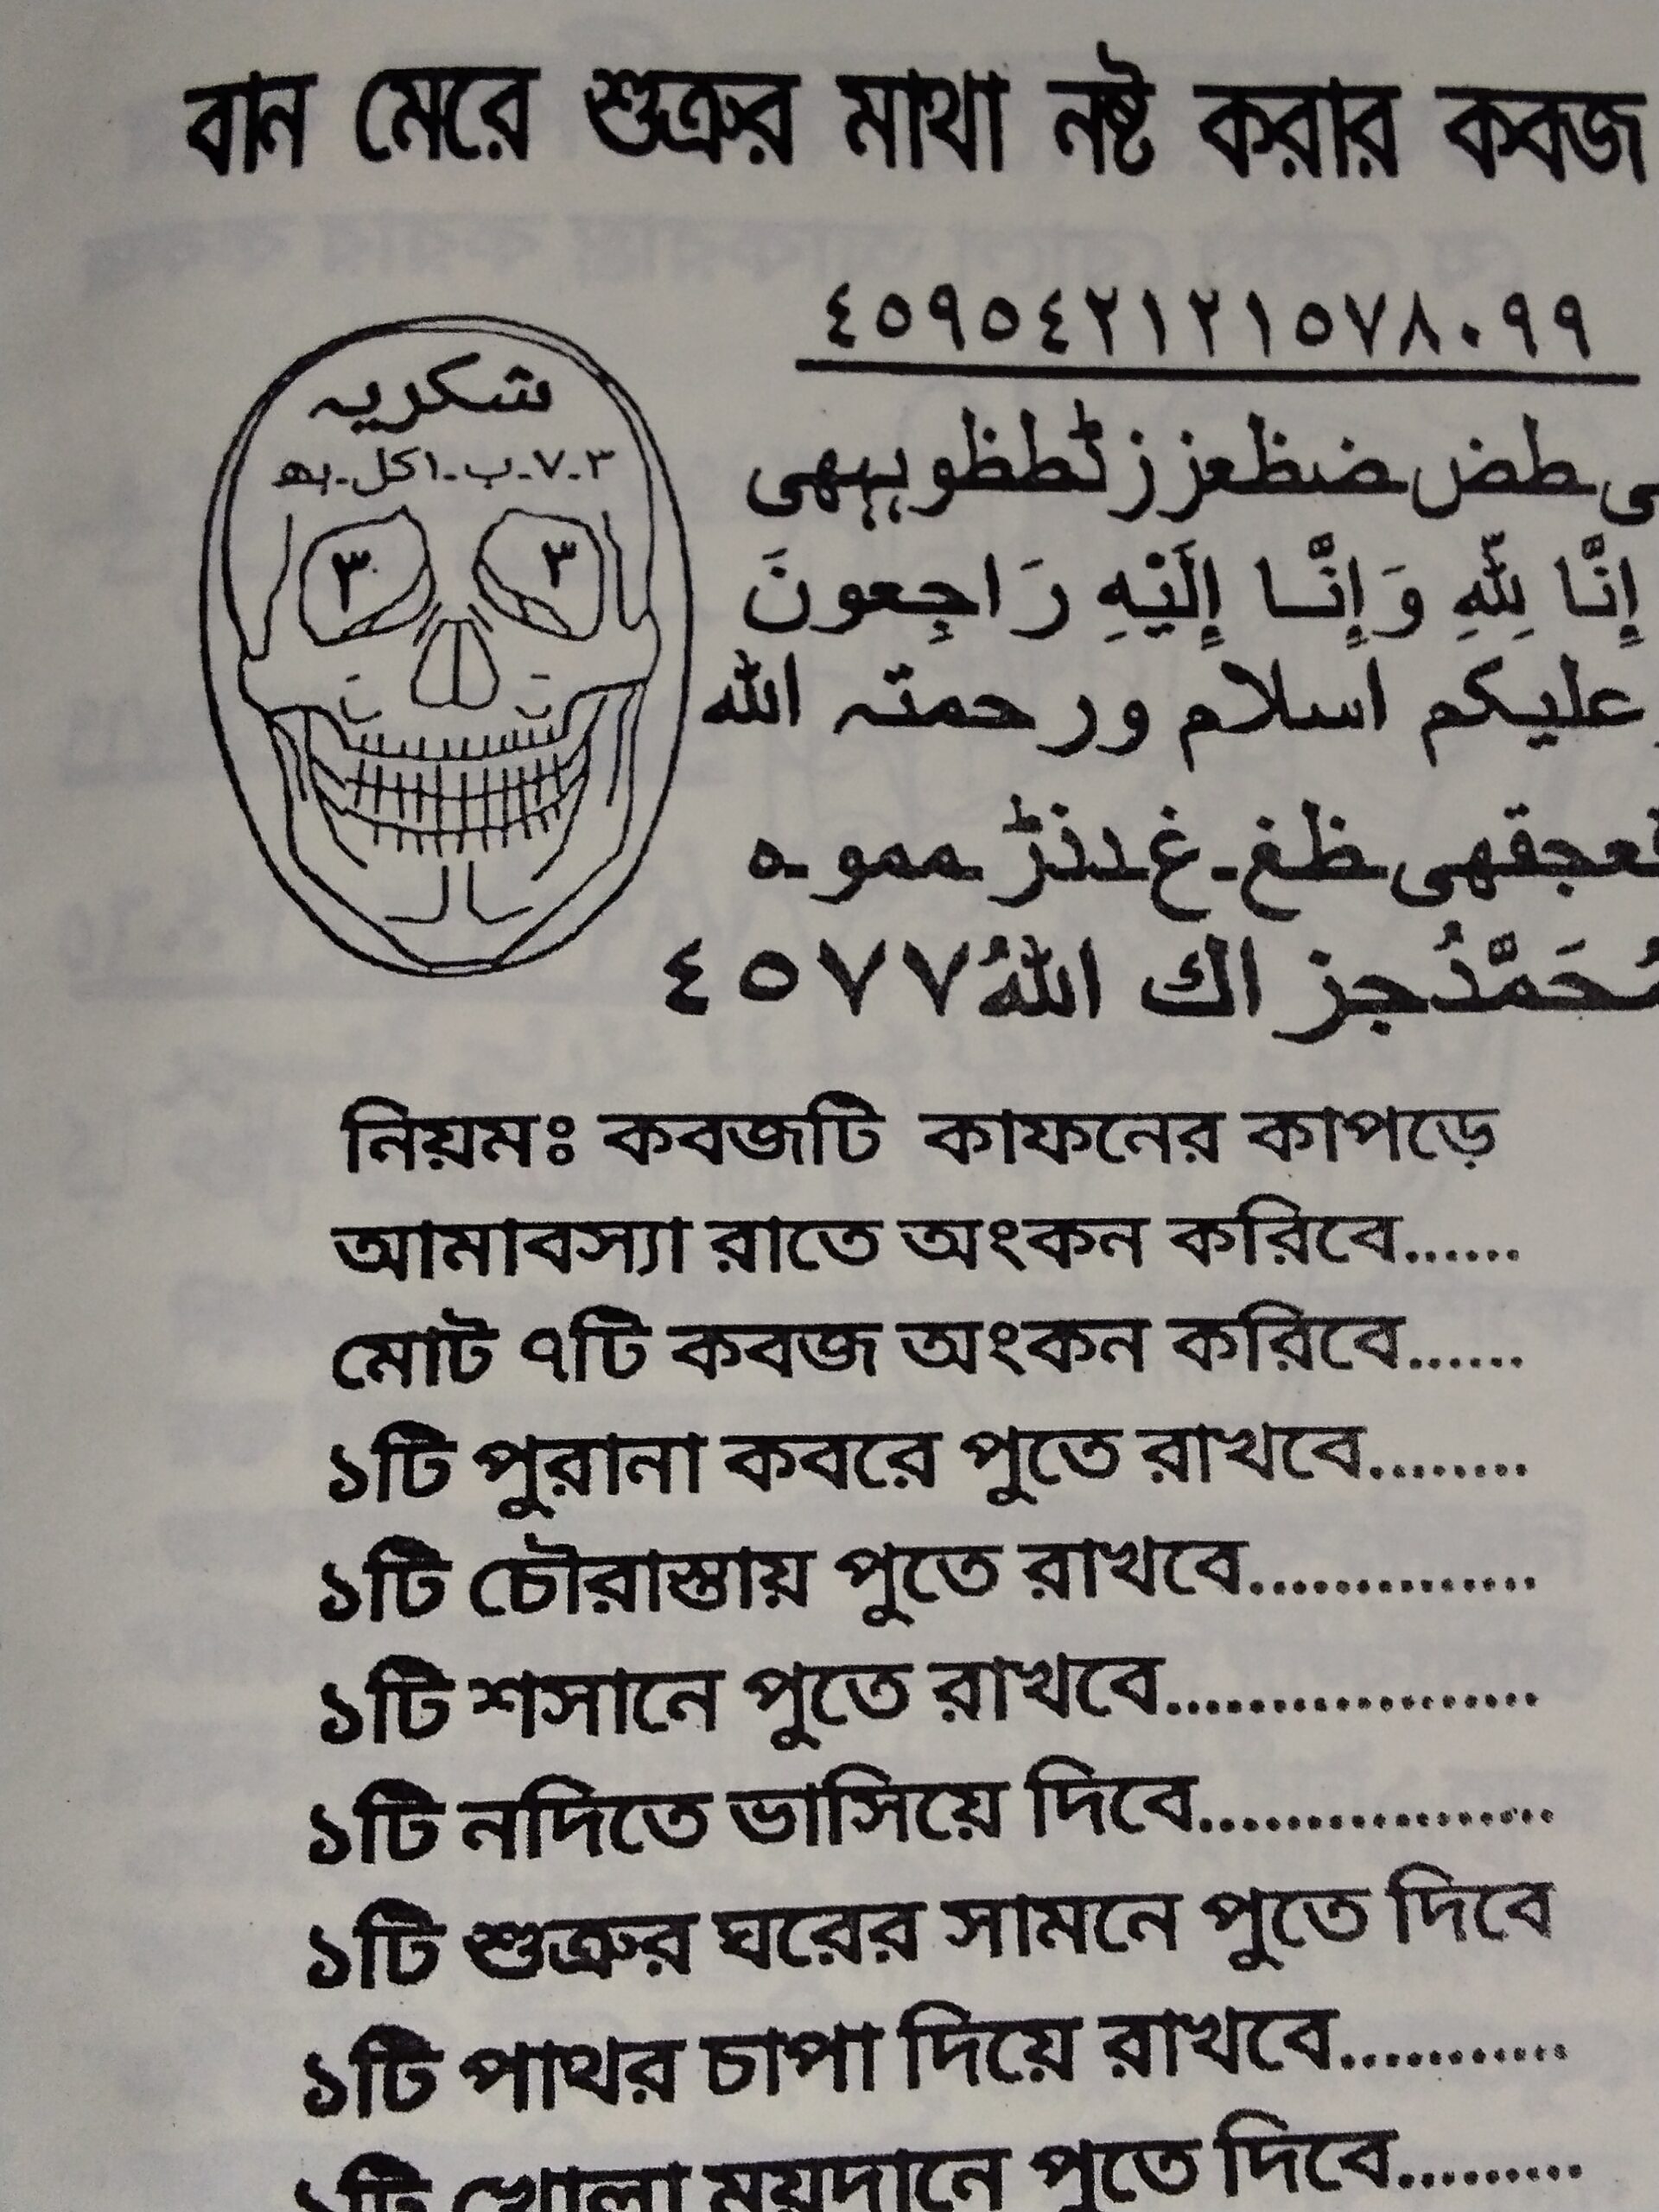 বান মেরে শুত্রুর মাথা নষ্ট করার কবজ
٤٥٩٥٤٢١٢١٥٧٨٠٩٩
شکریہ
٣-٧-ب-١کل-بھ
٣ ٣
إِنَّا لِلّٰهِ وَإِنَّا إِلَيْهِ رَاجِعونَ
علیکم اسلام ورحمتہ اللہ
مُحَمَّدُ جز اك اللهُ ٤٥٧٧
নিয়মঃ কবজটি কাফনের কাপড়ে
আমাবস্যা রাতে অংকন করিবে......
মোট ৭টি কবজ অংকন করিবে......
১টি পুরানা কবরে পুতে রাখবে........
১টি চৌরাস্তায় পুতে রাখবে..............
১টি শসানে পুতে রাখবে...................
১টি নদিতে ভাসিয়ে দিবে.................
১টি শুত্রুর ঘরের সামনে পুতে দিবে
১টি পাথর চাপা দিয়ে রাখবে...........
১টি খোলা ময়দানে পুতে দিবে.........